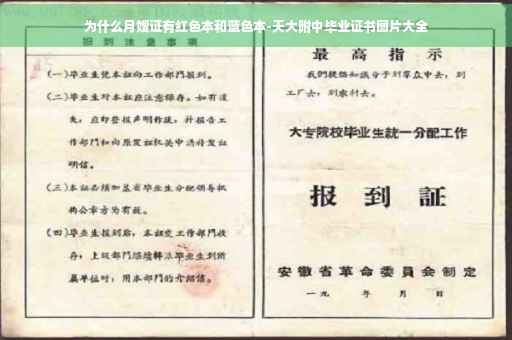 为什么月嫂证有红色本和蓝色本-天大附中毕业证书图片大全
报到注意事项
(一)毕业生凭本证向工作部门报到。
(二)毕业生对本证应注意保存。如有遗
失,应即登报声明作废,并报告工
作部门和向原发证机关申请补发证
明信。
(三)本证必须加盖省毕业生分配领导机
构公章方为有效。
(四)毕业生报到后,本证交工作部门收
存;上级部门继续转派毕业生到所
属单位时,用本部门的介绍信。
最高指示
我们提倡知识分子到群众中去,到
工厂去,到农村去。
大专院校毕业生统一分配工作
报到证
安徽省革命委员会制定
一九 年 月 日